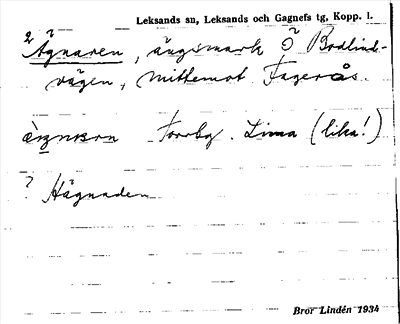 Leksands sn, Leksands och Gagnefs tg, Kopp. l.
2 ? Ägnaren, ängsmark Ö Bodlind-
vägen, mittemot Fagerås.
Torrby. Lima (lika!)
? Hägnaden
Bror Lindén 1934